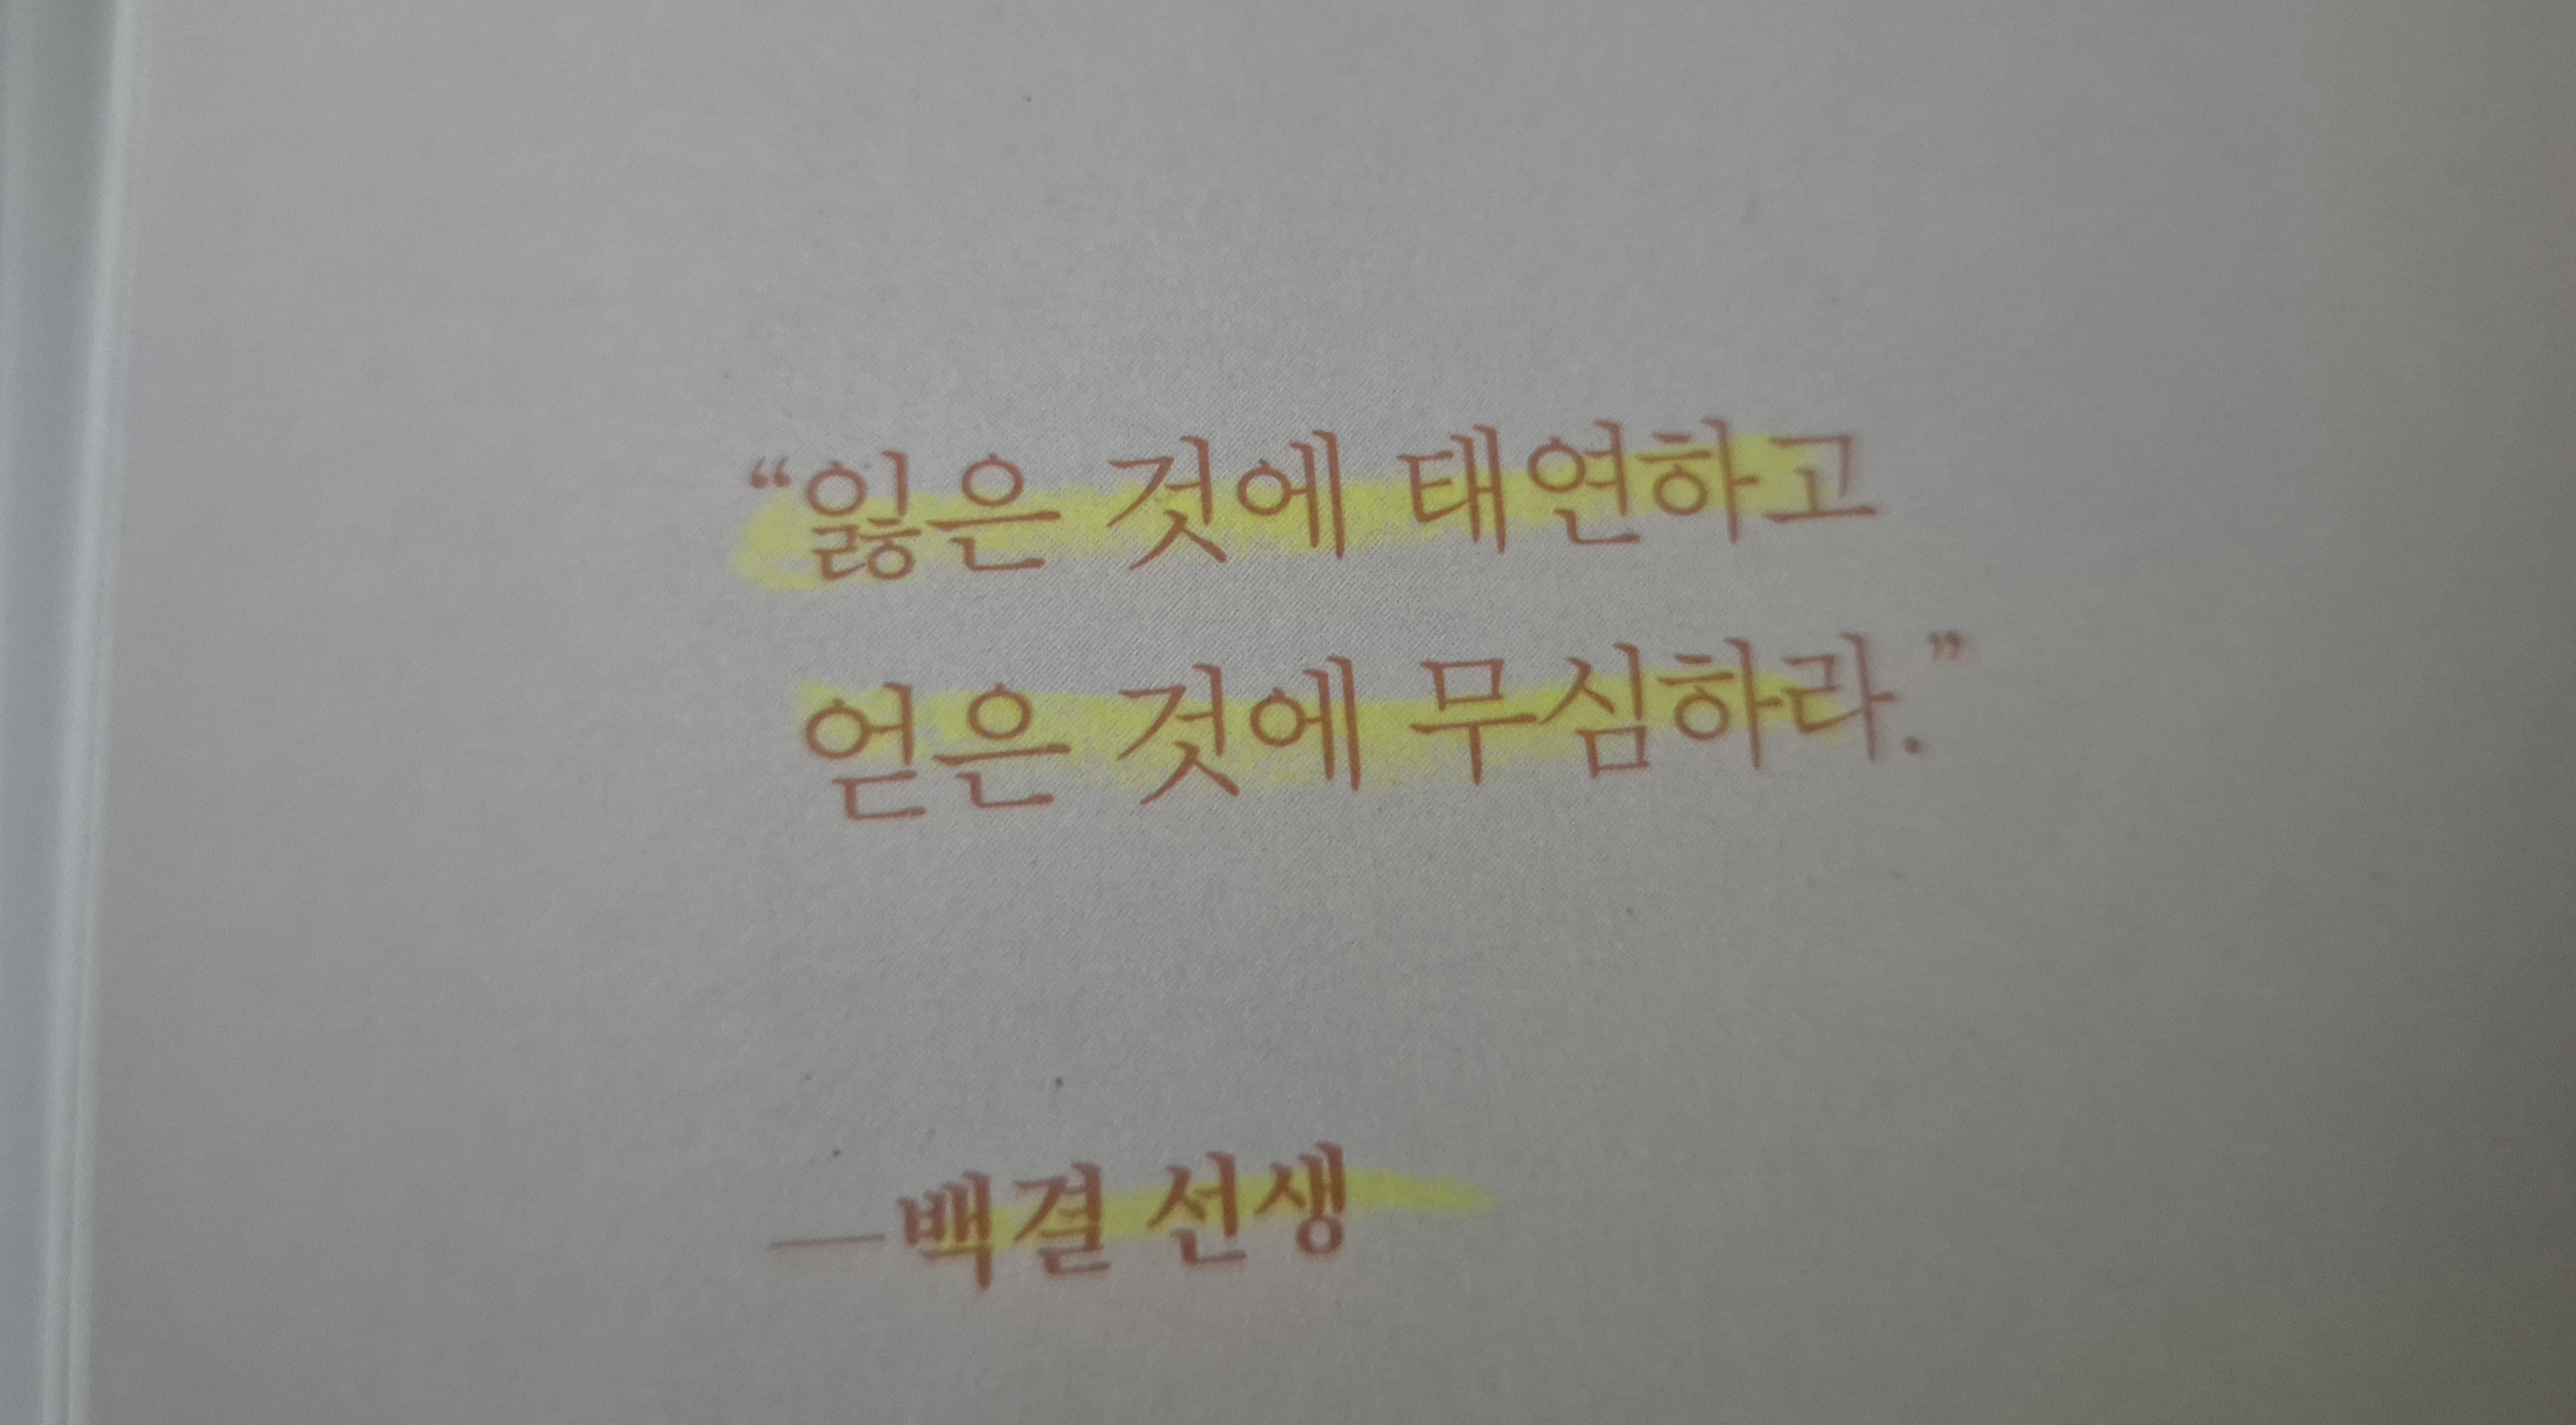 “잃은 것에 태연하고
얻은 것에 무심하라.”
—백결 선생